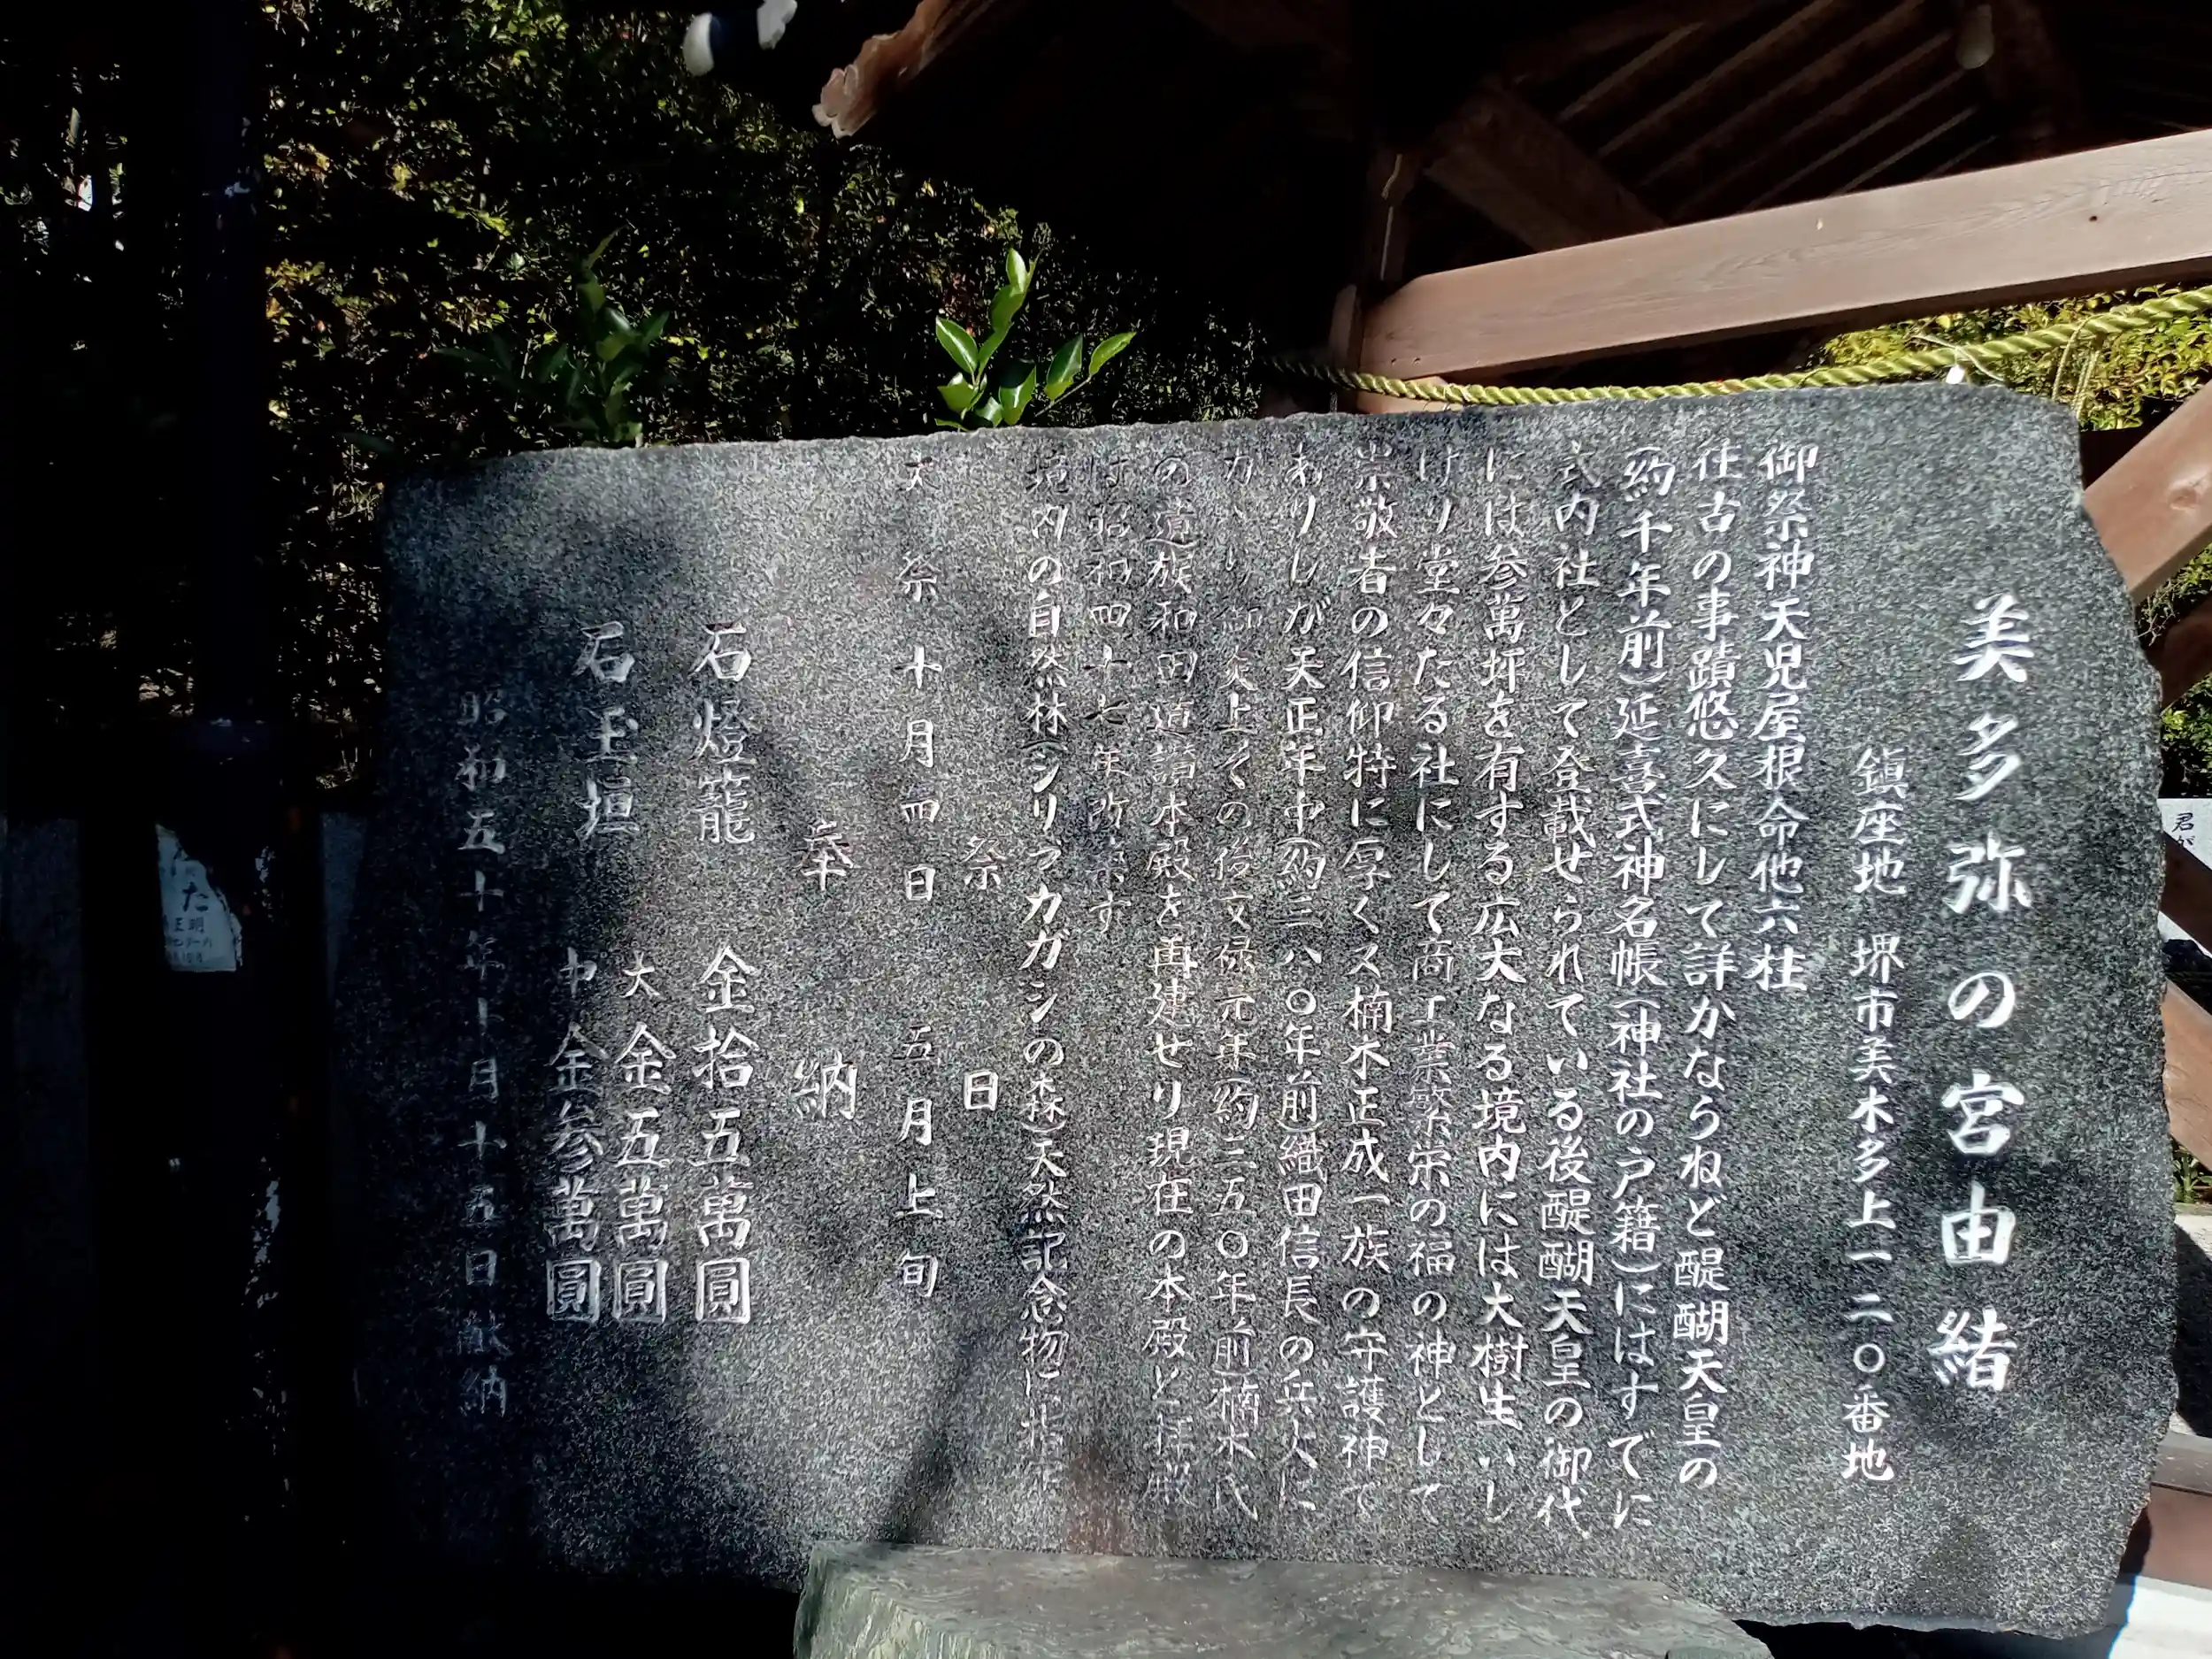 美多弥の宮由緒
鎮座地 堺市美木多上一二〇番地
御祭神天児屋根命他六柱
往古の事蹟悠久にして詳かならねど醍醐天皇の
(約千年前)延喜式神名帳(神社の戸籍)にはすでに
式内社として登載せられている後醍醐天皇の御代
には参萬坪を有する広大なる境内には大樹生いし
げり堂々たる社にして商工業繁栄の福の神として
崇敬者の信仰特に厚くス楠木正成一族の守護神で
ありしが天正年中(約三八〇年前)織田信長の兵火に
かゝり御炎上その後文禄元年(約三五〇年前)楠木氏
の遺族和田道讃本殿を再建せり現在の本殿と拝殿
は昭和四十七年改
す
境内の自然林(シリブカガシの森)天然記念物に指定
祭日
大祭 十月四日 五月上旬
奉納
石燈籠 金拾五萬圓
石玉垣 大金五萬圓
中金参萬圓
昭和五十年十月十五日献納
た
正明
君が